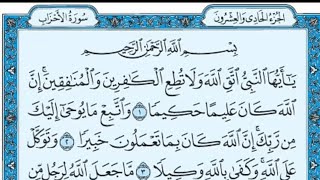 الجزء الحادى والعشرون
سورة الأحزاب
بِسْمِ اللَّهِ الرَّحْمَٰنِ الرَّحِيمِ
يَٰٓأَيُّهَا النَّبِيُّ اتَّقِ اللَّهَ وَلَا تُطِعِ الْكَٰفِرِينَ وَالْمُنَٰفِقِينَۗ إِنَّ
اللَّهَ كَانَ عَلِيمًا حَكِيمًا ١ وَاتَّبِعْ مَا يُوحَىٰٓ إِلَيْكَ
مِن رَّبِّكَۚ إِنَّ اللَّهَ كَانَ بِمَا تَعْمَلُونَ خَبِيرًا ٢ وَتَوَكَّلْ
عَلَى اللَّهِۚ وَكَفَىٰ بِاللَّهِ وَكِيلًا ٣ مَّا جَعَلَ اللَّهُ لِرَجُلٍ مِّن